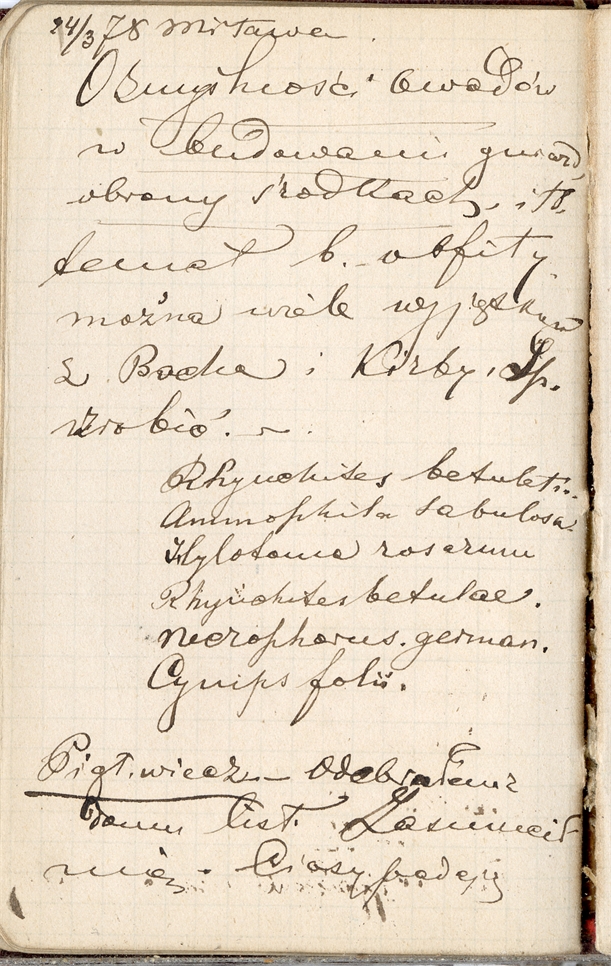 24/3 78 Mitawa.
Ozmyślność owadów
w budowaniu gniazd,
obrony środkach, itd.
temat b. obfity
można wiele wyjątków
z Bacha i Kirby, Sp.
zrobić. —
Rhynchites betuleti.
Ammophila sabulosa
Hylotoma rosarum
Rhynchites betulae.
Necrophorus. german.
Cynips folii.
Piąt. wiecz. — Odebrałem z
domu list. Zasmucił
mię. Ciosy padają